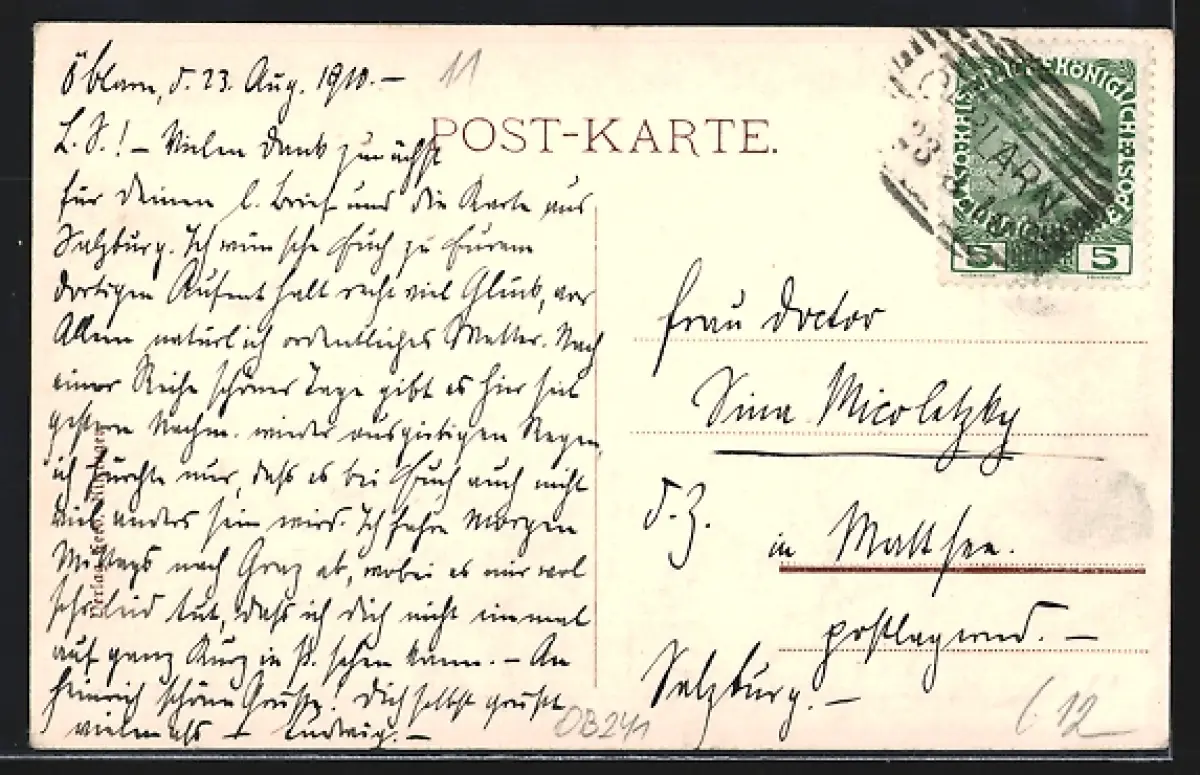 Öblarn, d. 23. Aug. 1910. –
11
L. S.! – Vielen Dank zunächst
für Deinen l. Brief und die Karte aus
Salzburg. Ich wünsche Euch zu Eurem
dortigen Aufenthalt recht viel Glück, vor
Allem natürlich ordentliches Wetter. Nach
einer Reihe schöner Tage gibt es hier seit
gestern Nachm. wieder ausgiebigen Regen,
ich fürchte nur, daß es bei Euch auch nicht
viel anders sein wird. Ich fahre morgen
Mittags nach Graz ab, wobei es mir wol
sehr leid tut, daß ich Dich nicht einmal
auf ganz kurz in S. sehen kann. – An
Heinrich schöne Grüße! Dich selbst grüßt
vielmals Ludwig. –
POST-KARTE.
KAISERLICHE KÖNIGLICHE ÖSTERR
5 5
ÖBLARN
23
Frau Doctor
Sina Micoletzky
d. Z.
in Mattsee.
postlagernd. –
Salzburg. –
OB241
(12
Verlag